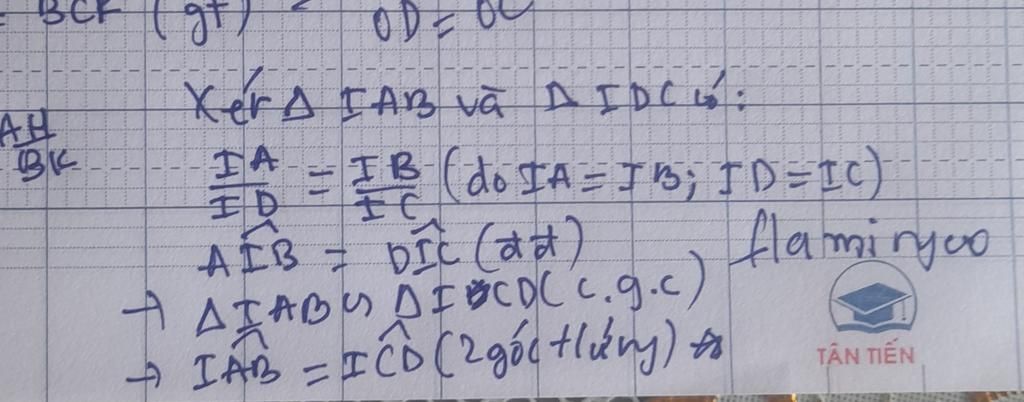 BCK (gt)
OD = OC
Xét Δ IAB và Δ IDC có:
AH/BK
IA/ID = IB/IC (do IA = IB; ID = IC)
AÎB = DÎC (đđ)
flamingoo
→ ΔIAB ∽ ΔICD (c.g.c)
→ IÂB = IĈD (2 góc tứng)
TÂN TIẾN